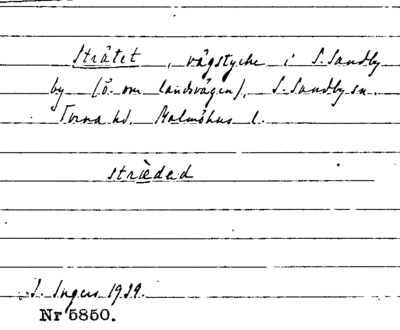 Strätet, vägstycke i S. Sandby
by (ö. om landsvägen), S. Sandby sn.
Torna hd. Malmöhus l.
striɛ̀dəd
I. Ingers 1939.
Nr 5850.